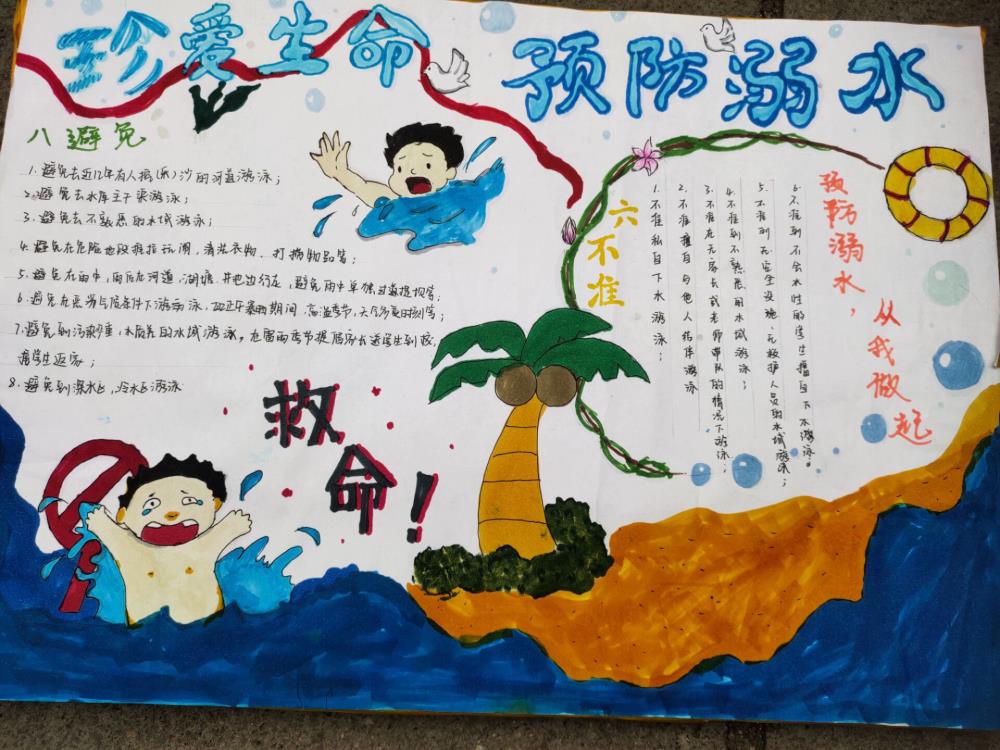 珍爱生命 预防溺水
八避免
1.避免去近几年有人挖(采)沙的河道游泳;
2.避免去水库主干渠游泳;
3.避免去不熟悉的水域游泳;
4.避免在危险地段推拉玩闹、清洗衣物、打捞物品等;
5.避免在雨中,雨后在河道,湖塘、井池边行走,避免雨中单独过
6.避免在恶劣气候条件下游泳,如正午暴晒期间、高温季节,天气多变时刻等;
7.避免到污染严重,水质差的水域游泳。在雷雨季节提醒家长送学生到校,
接学生返家;
8.避免到深水区,冷水区游泳
救命!
六不准
1.不准私自下水游泳;
2.不准擅自与他人结伴游泳
3.不准在无家长或老师带队的情况下游泳;
4.不准到不熟悉的水域游泳;
5.不准到无安全设施、无救护人员的水域游泳;
6.不准到不会水性的学生擅自下水游泳。
预防溺水,
从我做起